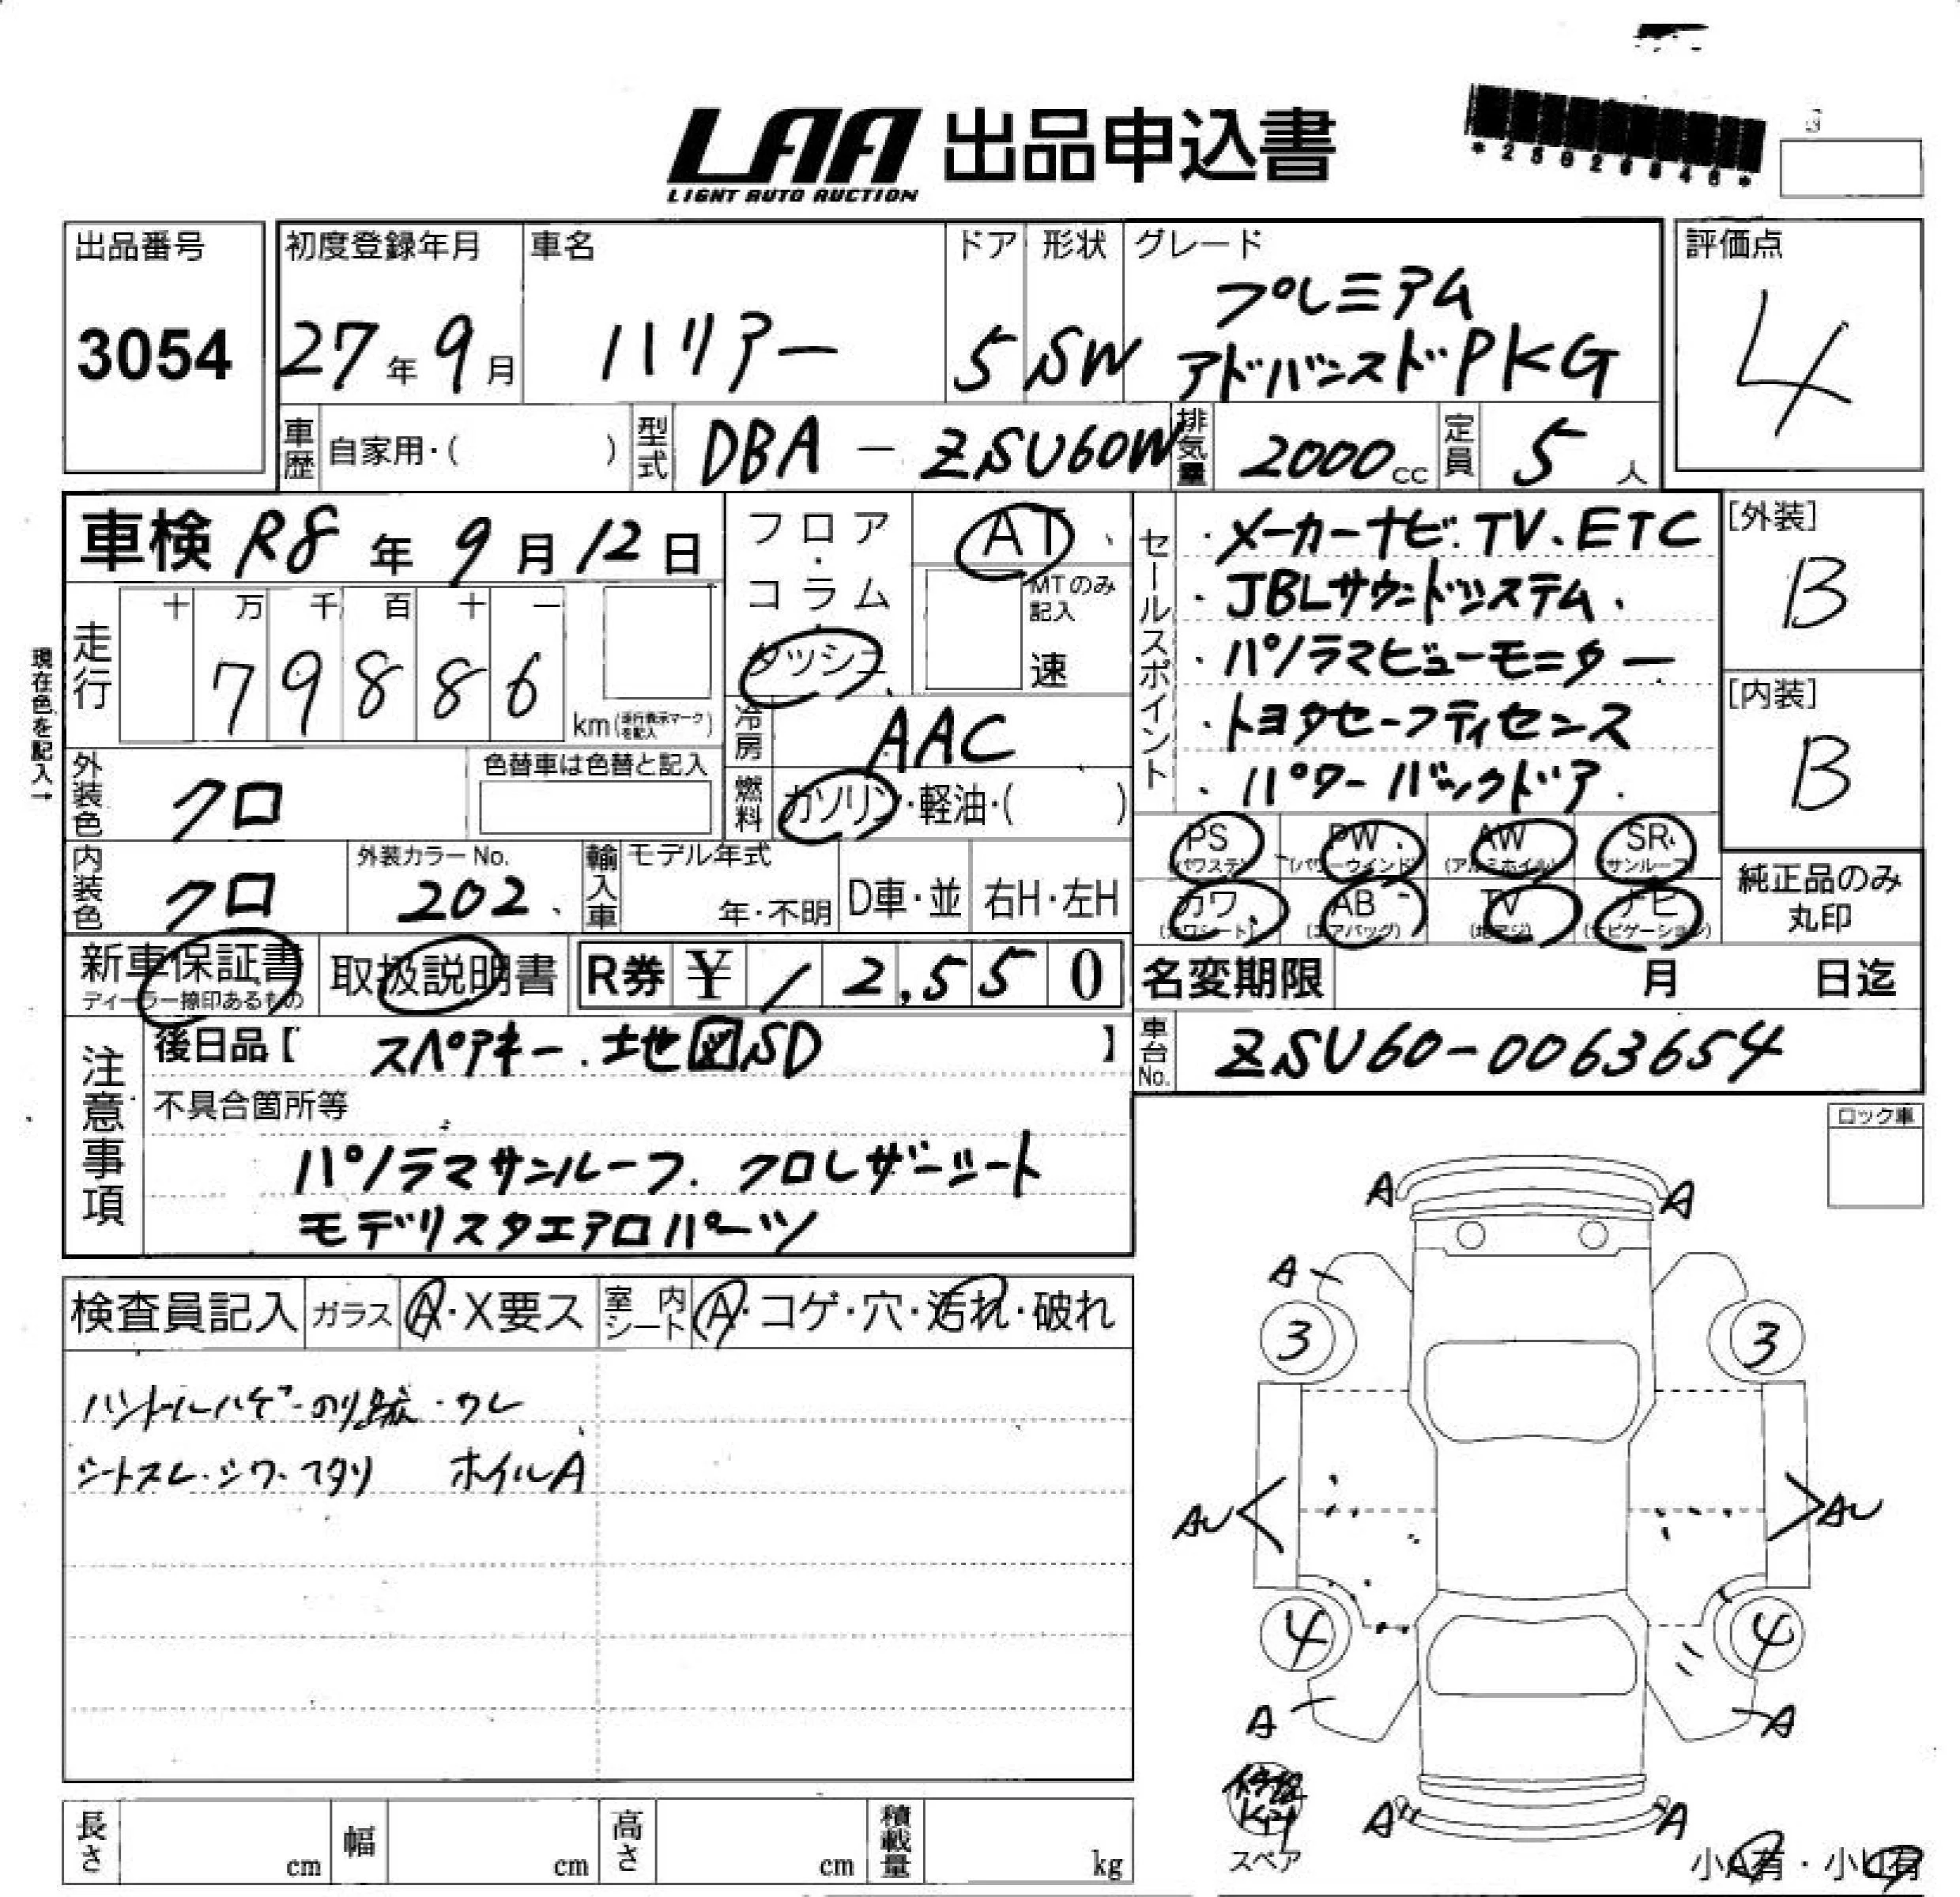 LAA 出品申込書
LIGHT AUTO AUCTION
出品番号
3054
初度登録年月
27年9月
車名
ハリアー
ドア
5
形状
SW
グレード
プレミアム
アドバンスドPKG
評価点
4
車歴 自家用・( )
型式 DBA-ZSU60W
排気量 2000cc
定員 5人
車検 R8年9月12日
フロア・コラム・ダッシュ
AT
MTのみ記入
速
現在色を記入→
走行
十 万 千 百 十 一
7 9 8 8 6
km(走行表示マークを記入)
冷房 AAC
燃料 ガソリン・軽油・( )
外装色 クロ
色替車は色替と記入
内装色 クロ
外装カラーNo.
202
輸入車
モデル年式
年・不明
D車・並
右H・左H
セールスポイント
・メーカーナビ.TV.ETC
・JBLサウンドシステム.
・パノラマビューモニター
・トヨタセーフティセンス
・パワーバックドア.
[外装]
B
[内装]
B
PS (パワステ)
PW (パワーウインド)
AW (アルミホイル)
SR (サンルーフ)
カワ (カワシート)
AB (エアバッグ)
TV (地デジ)
ナビ (ナビゲーション)
純正品のみ丸印
新車保証書
ディーラー捺印あるもの
取扱説明書
R券 ¥ / 2,5 5 0
名変期限 月 日迄
車台No. ZSU60-0063654
注意事項
後日品【 スペアキー.地図SD 】
不具合箇所等
パノラマサンルーフ. クロレザーシート
モデリスタエアロパーツ
ロック車
検査員記入
ガラス A・X要ス
室内シート A・コゲ・穴・汚れ・破れ
ハンドルハゲ・のり跡・ウレ
シートスレ・シワ・フタリ ホイルA
A A
A
3 3
AU AU
4 4
A A
修理Kit
スペア
A A
小A有・小U有
長さ cm
幅 cm
高さ cm
積載量 kg